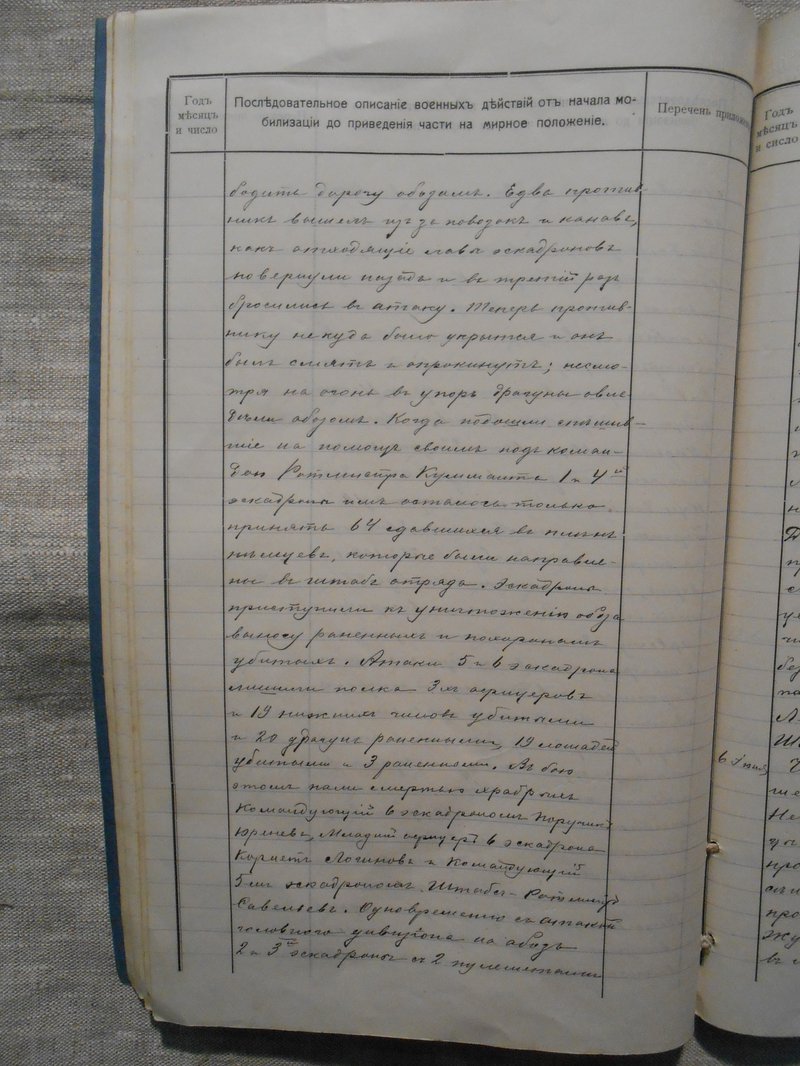 Годъ
мѣсяцъ
и число
Послѣдовательное описаніе военныхъ дѣйствій отъ начала мо-
билизаціи до приведенія части на мирное положеніе.
Перечень прилож
бодить дорогу обозамъ. Едва против-
никъ вышелъ изъ за повозокъ и канавъ,
какъ отходящіе лавы эскадроновъ
повернули назадъ и въ третій разъ
бросились въ атаку. Теперь против-
нику некуда было укрыться и онъ
былъ смятъ и опрокинутъ; несмо-
тря на огонь въ упоръ драгуны овла-
дѣли обозомъ. Когда подошли спѣшив-
шіе на помощь своимъ подъ коман-
дою Ротмистра 1 и 4й
эскадроны имъ осталось только
принять 64 сдавшихся въ плѣнъ
нѣмцевъ, которые были направле-
ны въ штабъ отряда. Эскадроны
приступили къ уничтоженію обоза
выносу раненныхъ и похоронамъ
убитыхъ. Атаки 5 и 6 эскадрона
лишили полка 3хъ офицеровъ
и 19 нижнихъ чиновъ убитыми
и 20 драгунъ раненными, 19 лошадей
убитыми и 3 раненными. Въ бою
этомъ пали смертью храбрыхъ
Командующій 6 эскадрономъ Поручикъ
Юреневъ, Младшій офицеръ 6 эскадрона
Корнетъ Логиновъ и Командующій
5мъ эскадрономъ Штабсъ-Ротмистръ
Савельевъ. Одновременно съ атакой
головного дивизіона на обозъ
2 и 3й эскадроны съ 2 пулеметами
Годъ
мѣсяцъ
и число
6 Іюля